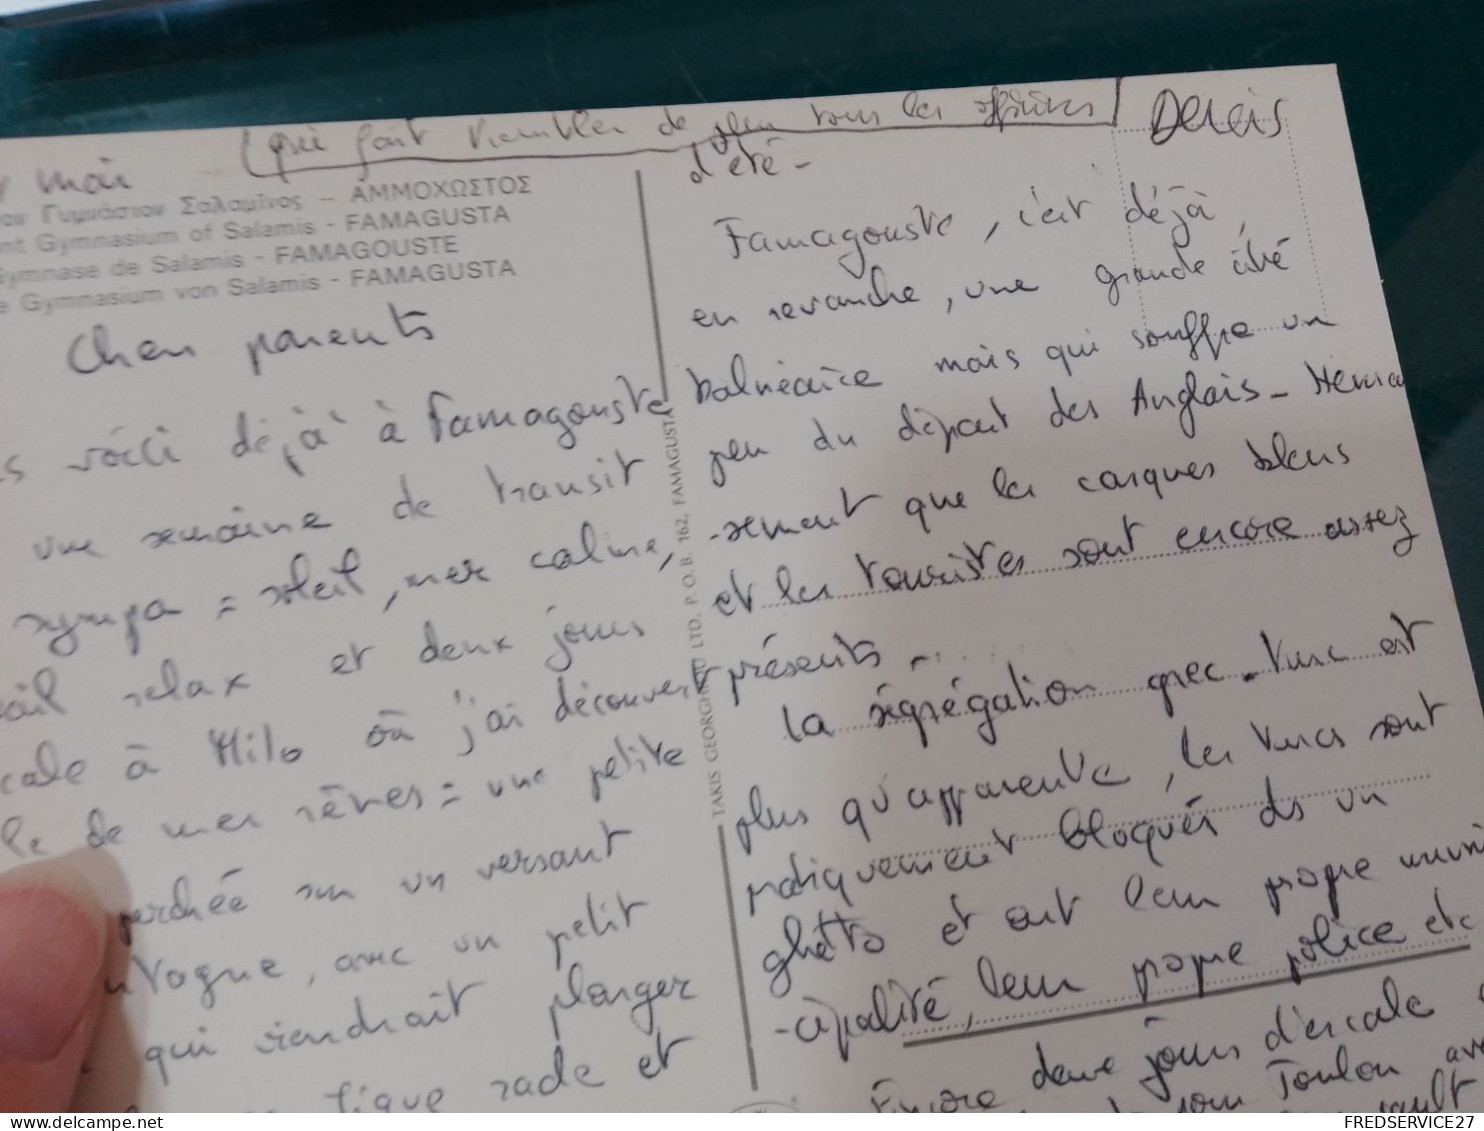 (qui fait trembler de peur tous les officiers
Denis
mai
d'été -
Γυμνάσιον Σαλαμῖνος - ΑΜΜΟΧΩΣΤΟΣ
Gymnasium of Salamis - FAMAGUSTA
Gymnase de Salamis - FAMAGOUSTE
Gymnasium von Salamis - FAMAGUSTA
Chers parents
voici déjà à Famagouste
une semaine de transit
sympa = soleil, mer calme,
relax et deux jours
à Milo où j'ai découvert
de mes rêves = une petite
perchée sur un versant
avec un petit
qui viendrait plonger
rade et
TAKIS GEORGHIOU LTD, P.O.B. 162, FAMAGUSTA
Famagouste, c'est déjà,
en revanche, une grande cité
balnéaire mais qui souffre un
peu du départ des Anglais - Heureu
-sement que les casques bleus
et les touristes sont encore assez
présents -..
La ségrégation grec-turc est
plus qu'apparente, les turcs sont
pratiquement bloqués ds un
ghetto et ont leur propre muni
-cipalité, leur propre police etc
Encore deux jours d'escale
Toulon
FREDSERVICE27